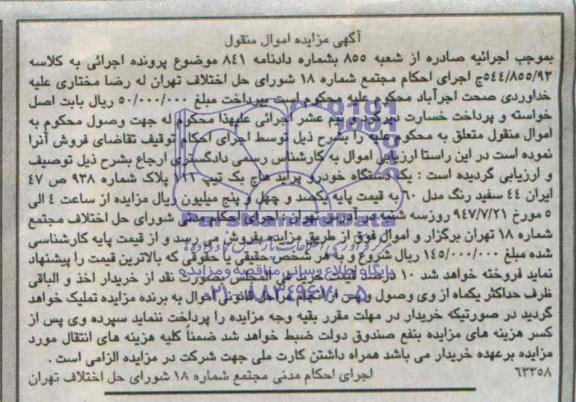 آگهی مزایده اموال منقول
بموجب اجرائیه صادره از شعبه ۸۵۵ بشماره دادنامه ۸۴۱ موضوع پرونده اجرائی به کلاسه
۵٤٤/۸۵۵/۹۳ج اجرای احکام مجتمع شماره ۱۸ شورای حل اختلاف تهران له رضا مختاری علیه
خداوردی صحت اجرآباد محکوم علیه محکوم است بپرداخت مبلغ ۵۰/۰۰۰/۰۰۰ ریال بابت اصل
خواسته و پرداخت خسارت دیرکرد و نیم عشر اجرائی علیهذا محکوم له جهت وصول محکوم به
اموال منقول متعلق به محکوم علیه را بشرح ذیل توسط اجرای احکام توقیف تقاضای فروش آنرا
نموده است در این راستا ارزیابی اموال به کارشناس رسمی دادگستری ارجاع بشرح ذیل توصیف
و ارزیابی گردیده است : یک دستگاه خودرو پراید هاچ بک تیپ پلاک شماره ۹۳۸ ص ۴۷
ایران ٤٤ سفید رنگ مدل به قیمت پایه یکصد و چهل و پنج میلیون ریال مزایده از ساعت ٤ الی
۵ مورخ ۹۴/۷/۲۱ روز سه شنبه در آدرس تهران اجرای احکام مدنی شورای حل اختلاف مجتمع
شماره ۱۸ تهران برگزار و اموال فوق از طریق مزایده بفروش می رسد و از قیمت پایه کارشناسی
شده مبلغ ۱۴۵/۰۰۰/۰۰۰ ریال شروع و به هر شخص حقیقی یا حقوقی که بالاترین قیمت را پیشنهاد
نماید فروخته خواهد شد ۱۰ درصد فی المجلس بصورت نقد از خریدار اخذ و الباقی
ظرف حداکثر یکماه از وی وصول و پس از انجام مراحل قانونی اموال به برنده مزایده تملیک خواهد
گردید در صورتیکه خریدار در مهلت مقرر بقیه وجه مزایده را پرداخت ننماید سپرده وی پس از
کسر هزینه های مزایده بنفع صندوق دولت ضبط خواهد شد ضمناً کلیه هزینه های انتقال مورد
مزایده برعهده خریدار می باشد همراه داشتن کارت ملی جهت شرکت در مزایده الزامی است .
۶۳۳۵۸ اجرای احکام مدنی مجتمع شماره ۱۸ شورای حل اختلاف تهران
پایگاه اطلاع رسانی مناقصه و مزایده
۰۲۱-۸۸۳۴۹۶۷۰-۵